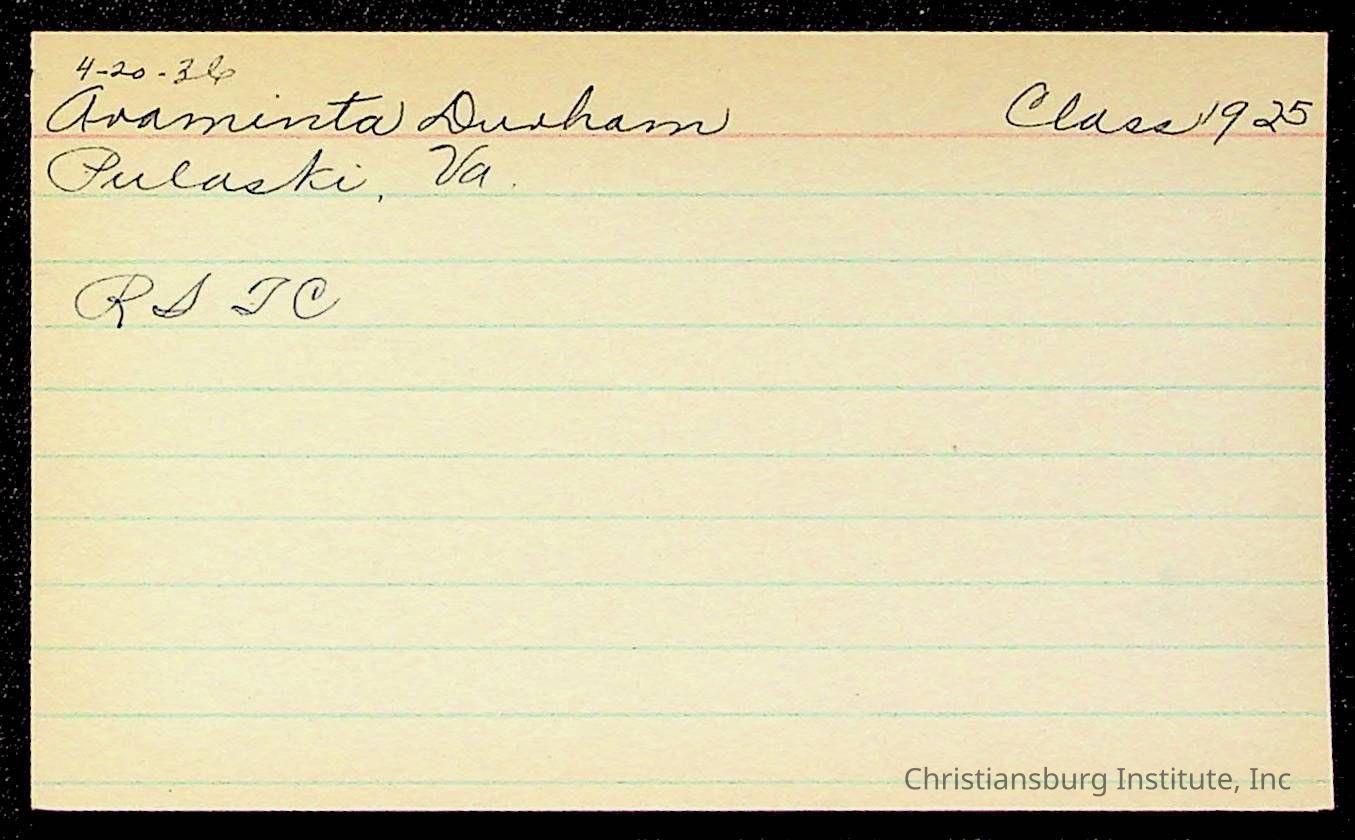 4-20-36
Araminta Durham Class 1925
Pulaski, Va.
R S T C
Christiansburg Institute, Inc